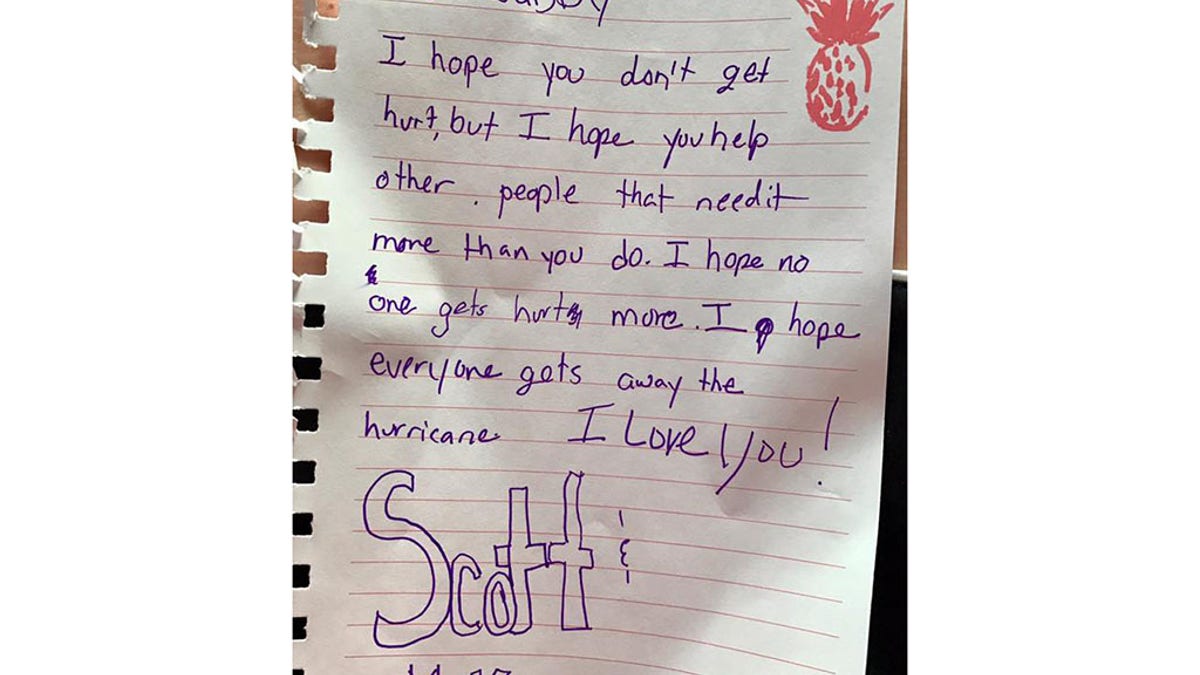 I hope you don't get
hurt, but I hope you help
other. people that need it
more than you do. I hope no
one gets hurt more. I hope
everyone gets away the
hurricane I Love You!
Scott &